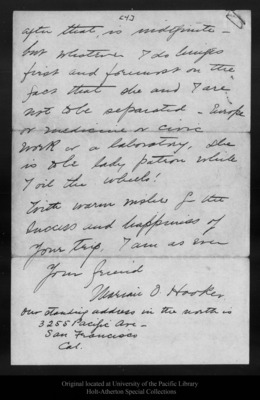 [4]
after that is indefinite –
but whatever I do hinges
first and foremost on the
fact that she and I are
not to be separated – Europe
or medicine or civic
work or a laboratory, she
is to be lady patron while
I oil the wheels!
With warm wishes for the
success and happiness of
your trip, I am as ever
Your friend
Marian O. Hooker.
Our standing address in the north is
3255 Pacific Ave –
San Francisco
Cal.
Original located at University of the Pacific Library
Holt-Atherton Special Collections